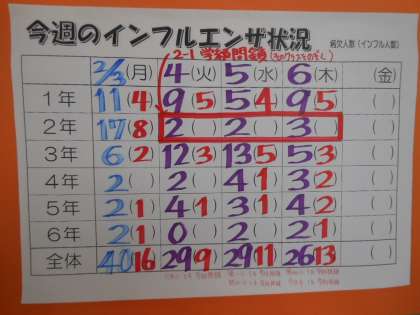 今週のインフルエンザ状況 欠人数（インフル人数）
2-1 学級閉鎖
2/3(月) 4(火) 5(水) 6(木) (金)
1年 11(4) 9(5) 5(4) 9(5) ( )
2年 17(8) 2( ) 2( ) 3( ) ( )
3年 6(2) 12(3) 13(5) 5(3) ( )
4年 2( ) 2( ) 4(1) 3(2) ( )
5年 2(1) 4(1) 3(1) 4(2) ( )
6年 2(1) 0( ) 2( ) 2(1) ( )
全体 40(16) 29(9) 29(11) 26(13) ( )